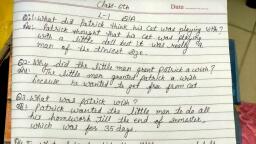 Class-6th Date
L-1 Q/A
Q:1. What did Patrick think his cat was playing with?
Ans: Patrick thought that his cat was playing
with a little doll but it was really a
man of the tiniest size.
Q:2. Why did the little man grant Patrick a wish?
Ans: The little man granted Patrick a wish
because he wanted to get free from cat
Q:3. What was Patrick wish?
Patrick wanted the little man to do all
his homework till the end of semester,
which was for 35 days.
What did the little man